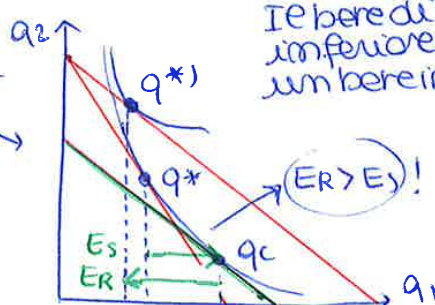 q2
Il bene di
inferiore
un bene in
q*'
q*
ER > ES !
ES
qc
ER
q1